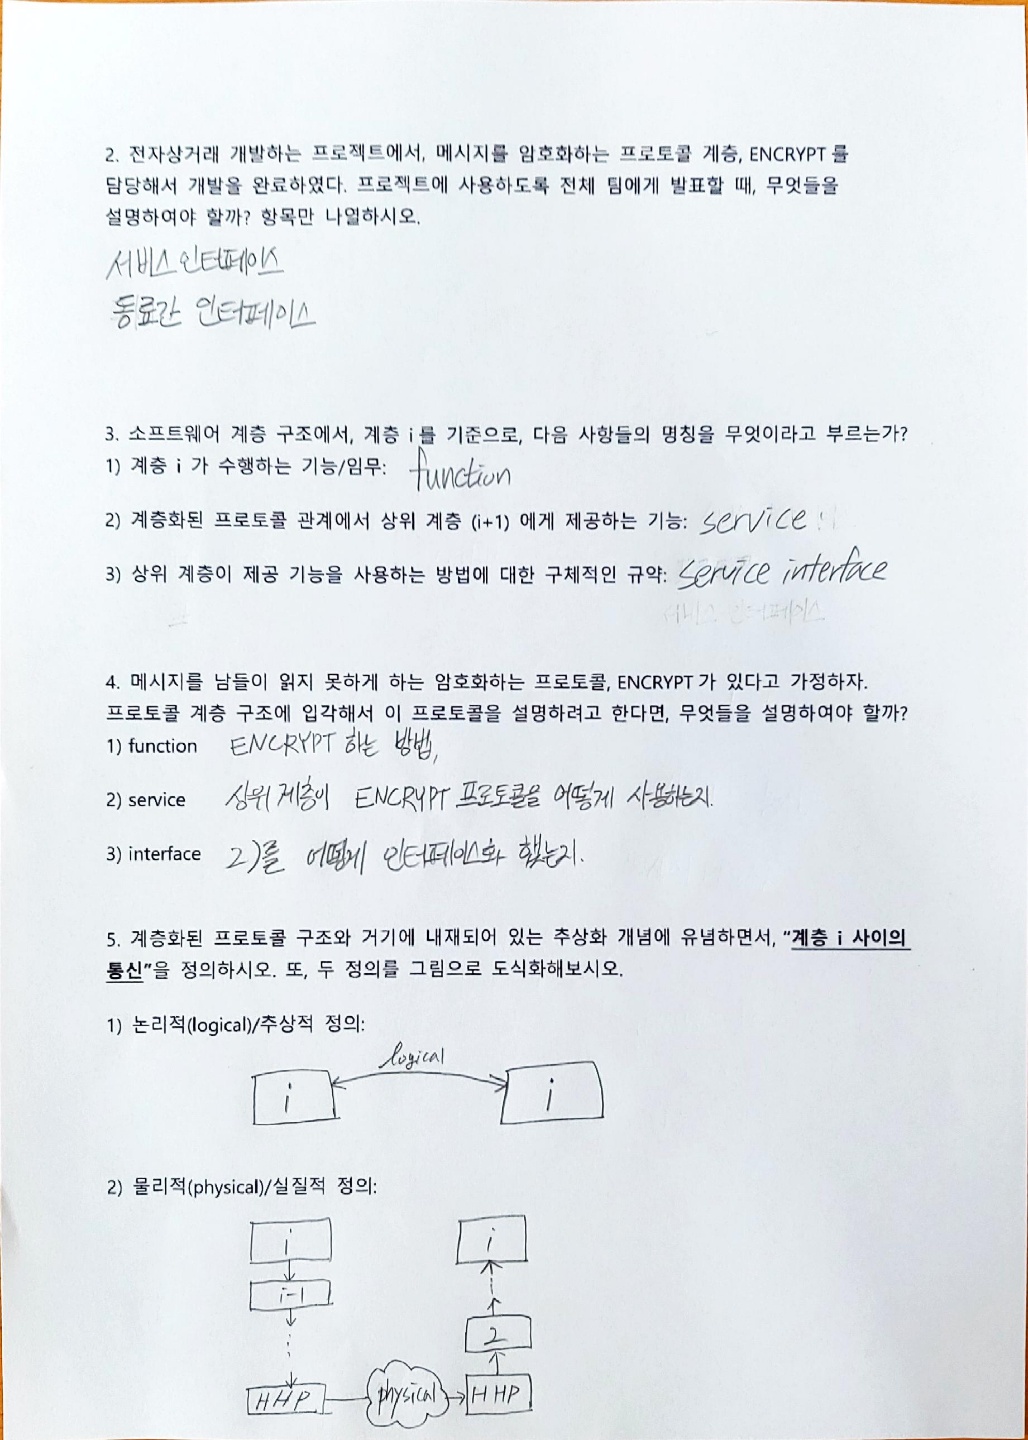 2. 전자상거래 개발하는 프로젝트에서, 메시지를 암호화하는 프로토콜 계층, ENCRYPT 를
담당해서 개발을 완료하였다. 프로젝트에 사용하도록 전체 팀에게 발표할 때, 무엇들을
설명하여야 할까? 항목만 나열하시오.
서비스 인터페이스
동료간 인터페이스
3. 소프트웨어 계층 구조에서, 계층 i 를 기준으로, 다음 사항들의 명칭을 무엇이라고 부르는가?
1) 계층 i 가 수행하는 기능/임무: function
2) 계층화된 프로토콜 관계에서 상위 계층 (i+1) 에게 제공하는 기능: service
3) 상위 계층이 제공 기능을 사용하는 방법에 대한 구체적인 규약: service interface
서비스 인터페이스
4. 메시지를 남들이 읽지 못하게 하는 암호화하는 프로토콜, ENCRYPT 가 있다고 가정하자.
프로토콜 계층 구조에 입각해서 이 프로토콜을 설명하려고 한다면, 무엇들을 설명하여야 할까?
1) function ENCRYPT 하는 방법,
2) service 상위 계층이 ENCRYPT 프로토콜을 어떻게 사용하는지.
3) interface 2)를 어떻게 인터페이스화 했는지.
5. 계층화된 프로토콜 구조와 거기에 내재되어 있는 추상화 개념에 유념하면서, "계층 i 사이의
통신"을 정의하시오. 또, 두 정의를 그림으로 도식화해보시오.
1) 논리적(logical)/추상적 정의:
logical
i i
2) 물리적(physical)/실질적 정의:
i i
i-1
2
HHP physical HHP